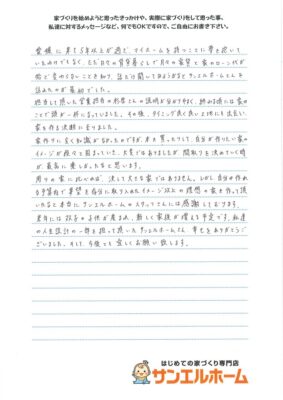 家づくりを始めようと思ったきっかけや、実際に家づくりをして思った事、
私達に対するメッセージなど、何でもOKですので、ご自由にお書き下さい。
愛媛に来て5年以上が過ぎ、マイホームを持つことに夢を抱いて
いたわけでもなく、ただ日々の育児暮らしで月々の家賃と家のローン代が
殆ど変わらないことを知り、話だけ聞いてみようかなとサンエルホームさんを
訪ねたのが最初でした。
担当して頂いた営業担当の
さんの説明が分かりやすく、終わる頃には家の
ことで頭が一杯になっていました。その後、タイミング良く良い土地にも出会い
家を作る決断に至りました。
家作りに全く知識がなかったのですが、本を買ったりして、自分が作りたい家の
イメージが段々と固まっていき、大変ではありましたが間取りを決めていく時
が最高に楽しかったなと思います。
周りの家に比べれば、決して大きな家ではありません。しかし自分が作れ
る予算内で希望を存分に取り入れたイメージ以上の理想の家を作って頂
いたなと本当にサンエルホームのスタッフさんには感謝しております。
来年には双子の子供が産まれ、新しく家族が増える予定です。私達
の人生設計の一部を担って頂いたサンエルホームさん、幸せをありがとうご
ざいました。そして、今後とも宜しくお願い致します。
はじめての家づくり専門店
サンエルホーム